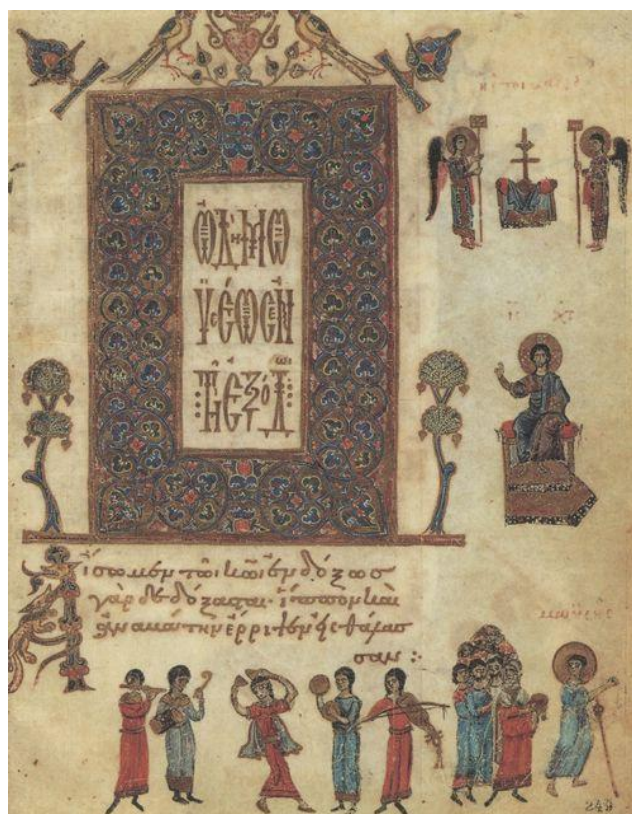 ἡ ἑτοιμασία
ὨΔῊ ΜΩ
ΫСΈΩС ἘΝ
ΤΗ͂ ἘΞΌΔΩ
ΙС ΧС
Αἴσωμεν τῶι κῶι ἐνδόξωσ
γὰρ δεδόξασται· ἵππον καὶ
ἀναβάτην ἔρριψεν εἰς θάλασ
σαν :
μωϋσῆς
249